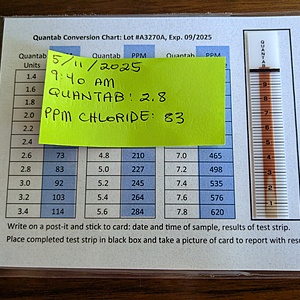 Quantab Conversion Chart: Lot #A3270A, Exp. 09/2025
Quantab PPM Quantab PPM
Units
5/11/2025
9:40 AM
QUANTAB: 2.8
PPM CHLORIDE: 83
1.4
1.6
1.8
2.0
2.2
2.4
2.6 73 4.8 210 7.0 465
2.8 83 5.0 227 7.2 498
3.0 92 5.2 245 7.4 535
3.2 103 5.4 264 7.6 576
3.4 114 5.6 284 7.8 620
QUANTAB
9
8
7
6
5
4
3
2
1
Write on a post-it and stick to card: date and time of sample, results of test strip.
Place completed test strip in black box and take a picture of card to report with